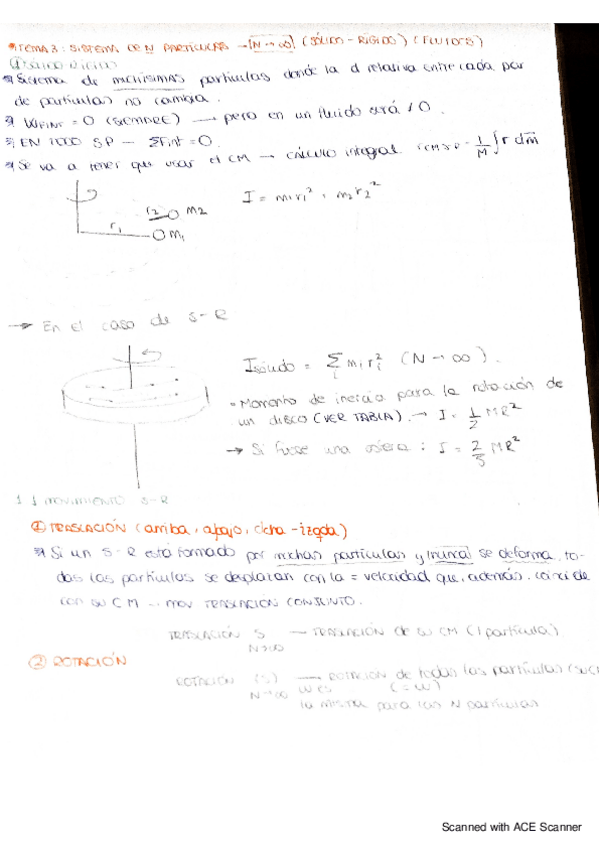 * TEMA 3: SISTEMA DE N PARTÍCULAS - [N → ∞] (SÓLIDO-RÍGIDO) (FLUIDOS)
* Sistema de muchísimas partículas donde la d relativa entre cada par
de partículas no cambia.
* WFINT = 0 (SIEMPRE) → pero en un fluido será ≠ 0.
* EN TODO SP - ΣFint = 0.
* Se va a tener que usar el CM → CÁLCULO integral rCM = 1/M ∫ r dm
r2 m2
r1 m1
I = m1r1² + m2r2²
→ En el caso de S-R
Isólido = Σ mi ri² (N → ∞).
i
- Momento de inercia para la rotación de
un DISCO (VER TABLA). → I = 1/2 MR²
→ Si fuese una esfera: I = 2/5 MR²
1.1 MOVIMIENTO S-R
① TRASLACIÓN (arriba, abajo, dcha-izqda)
* Si un S-R está formado por muchas partículas y (nunca) se deforma, to-
das las partículas se desplazan con la = velocidad que, además, coincide
con su CM → mov TRASLACIÓN CONJUNTO.
TRASLACIÓN S → TRASLACIÓN de su CM (1 partícula)
N→∞
② ROTACIÓN
ROTACIÓN (S) → ROTACIÓN de todas las partículas (su CM
N→∞ (= w)
la misma para las N partículas
Scanned with ACE Scanner